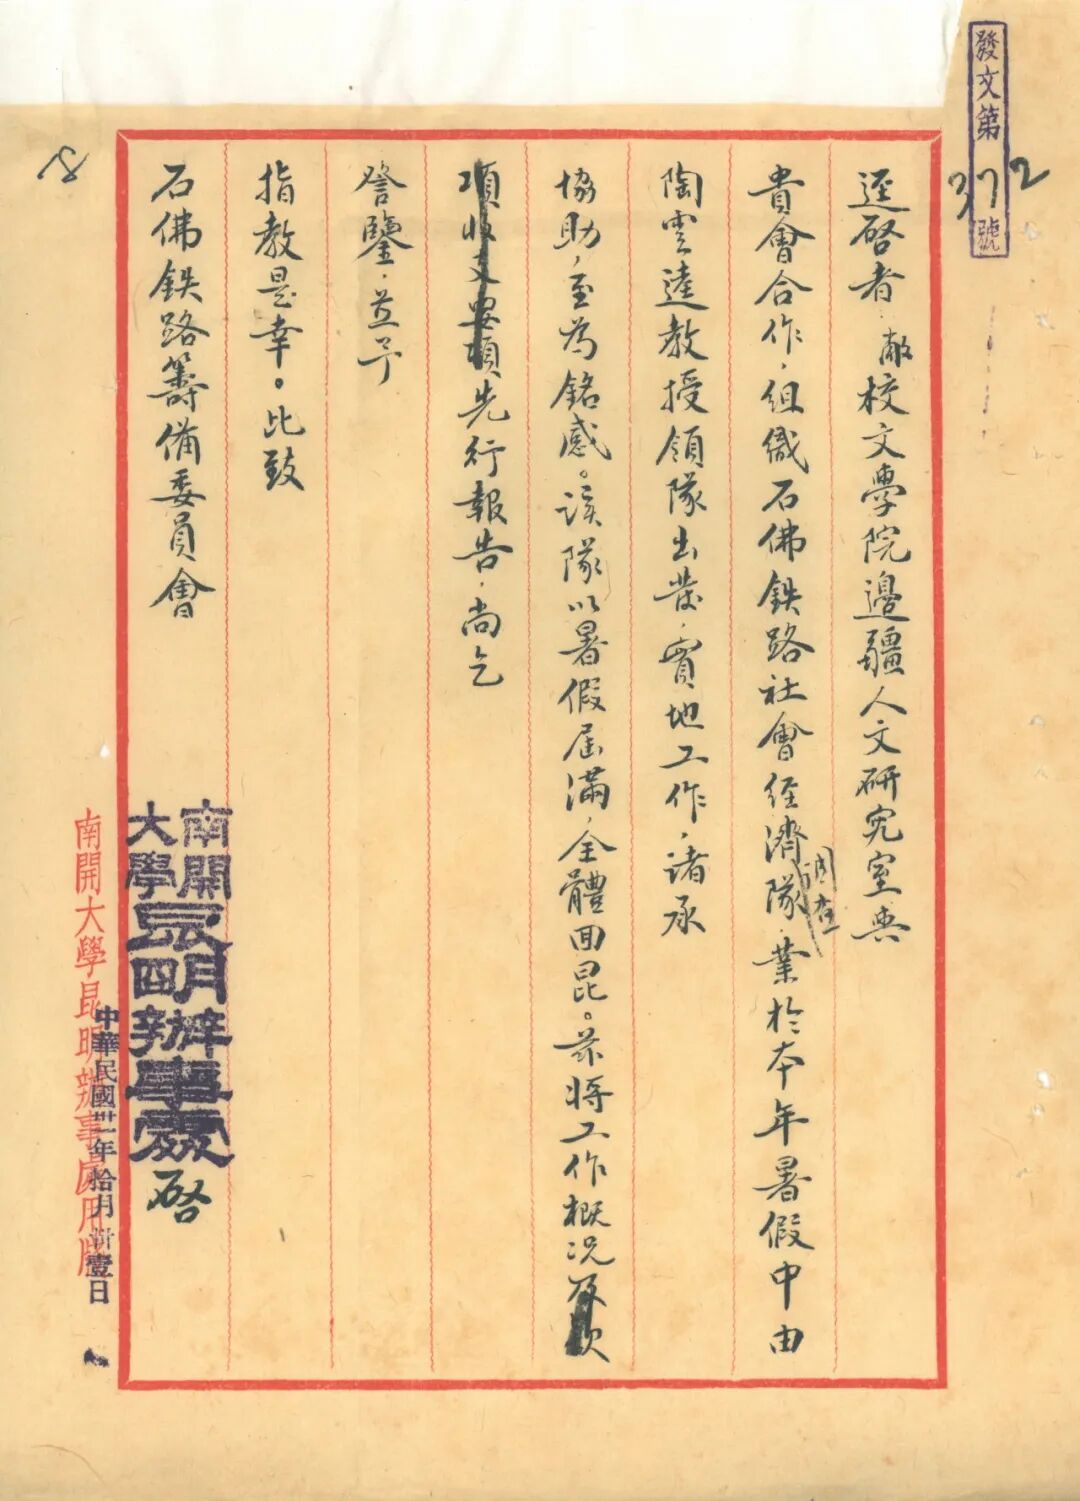 發文第372號
逕啓者：敝校文學院邊疆人文研究室與
貴會合作，組織石佛鉄路社會經濟調查隊，業於本年暑假中由
陶雲逵教授領隊出發，實地工作，諸承
協助，至為銘感。該隊以暑假屆滿，全體囬昆。茲將工作概况及欵
項收支要項先行報告，尚乞
詧鑒，並予
指教是幸。此致
石佛鉄路籌備委員會
南開大學昆明辦事處
啓
中華民國卅一年拾月 壹日
南開大學昆明辦事處用牋